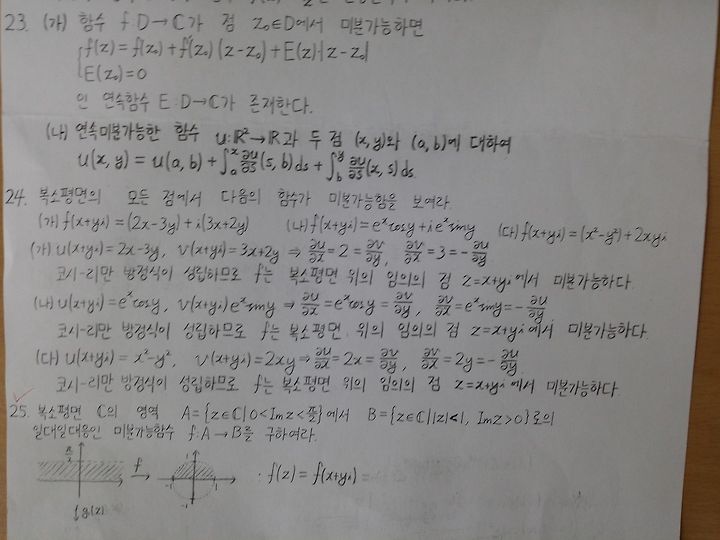 23. (가) 함수 f:D→ℂ가 점 z₀∈D에서 미분가능하면
f(z)=f(z₀)+f'(z₀)(z-z₀)+E(z)|z-z₀|
E(z₀)=0
인 연속함수 E:D→ℂ가 존재한다.
(나) 연속미분가능한 함수 u:ℝ²→ℝ과 두 점 (x,y)와 (a,b)에 대하여
u(x,y)=u(a,b)+∫ₐˣ ∂u/∂s(s,b)ds+∫_b^y ∂u/∂s(x,s)ds
24. 복소평면의 모든 점에서 다음의 함수가 미분가능함을 보여라.
(가) f(x+yi)=(2x-3y)+i(3x+2y) (나) f(x+yi)=eˣcosy+ieˣsiny (다) f(x+yi)=(x²-y²)+2xyi
(가) u(x+yi)=2x-3y, v(x+yi)=3x+2y ⇒ ∂u/∂x=2=∂v/∂y, ∂v/∂x=3=-∂u/∂y
코시-리만 방정식이 성립하므로 f는 복소평면 위의 임의의 점 z=x+yi에서 미분가능하다.
(나) u(x+yi)=eˣcosy, v(x+yi)eˣsiny ⇒ ∂u/∂x=eˣcosy=∂v/∂y, ∂v/∂x=eˣsiny=-∂u/∂y
코시-리만 방정식이 성립하므로 f는 복소평면 위의 임의의 점 z=x+yi에서 미분가능하다.
(다) u(x+yi)=x²-y², v(x+yi)=2xy ⇒ ∂u/∂x=2x=∂v/∂y, ∂v/∂x=2y=-∂u/∂y
코시-리만 방정식이 성립하므로 f는 복소평면 위의 임의의 점 z=x+yi에서 미분가능하다.
25. 복소평면 ℂ의 영역 A={z∈ℂ|0<Imz<π/2}에서 B={z∈ℂ||z|<1, Imz>0}로의
일대일대응인 미분가능함수 f:A→B를 구하여라.
π/2 f 1 -1 1 -1 f(z)=f(x+yi)=
g(z)